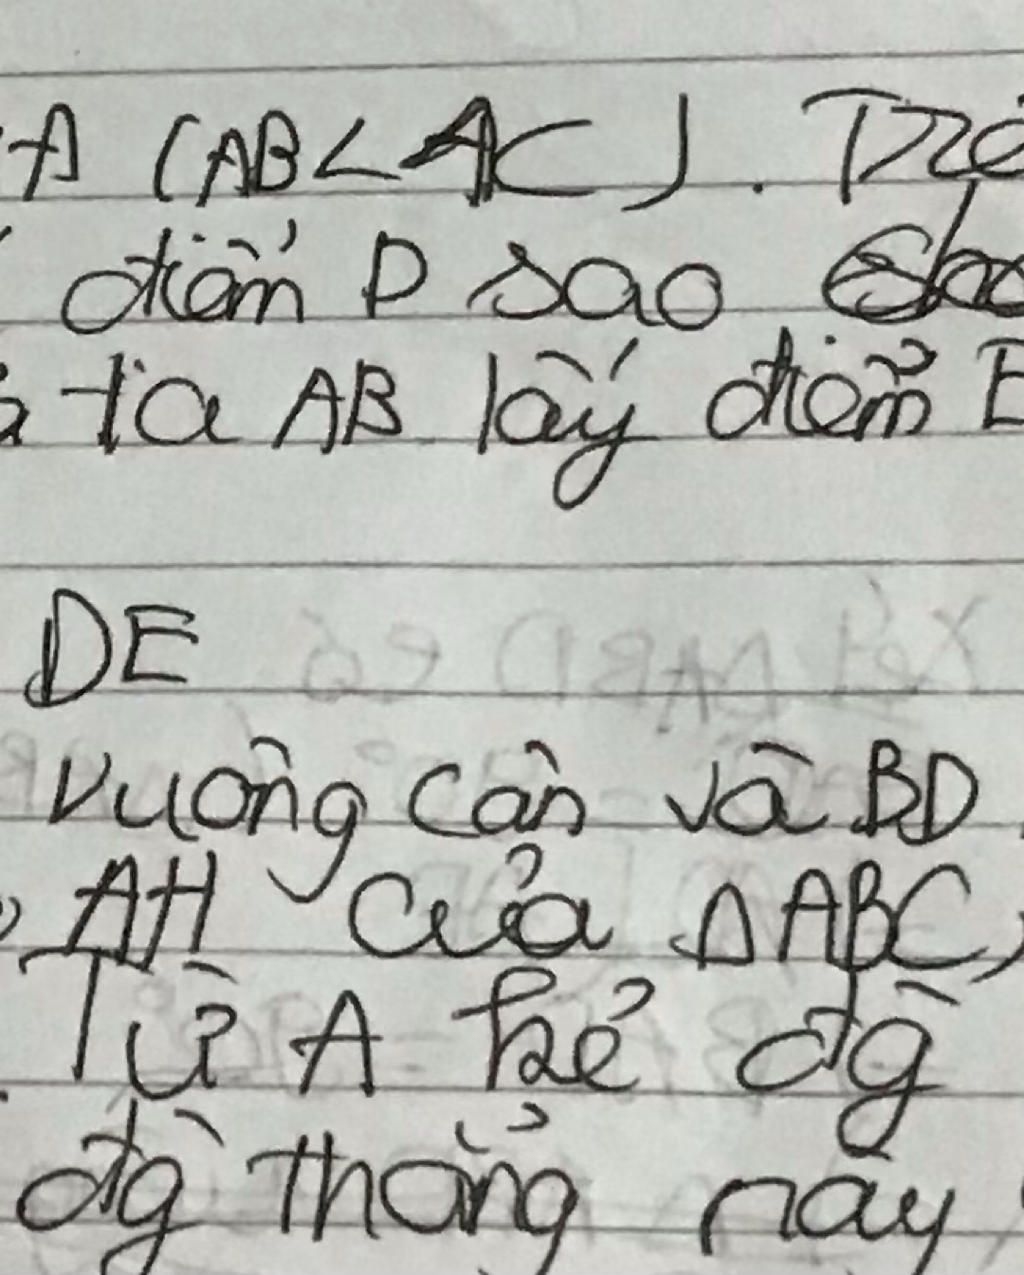 A (AB < AC). Trê
điểm D sao cho
tia AB lấy điểm E
DE
vuông cân và BD
AH của ΔABC,
Từ A kẻ đg
đg thẳng này